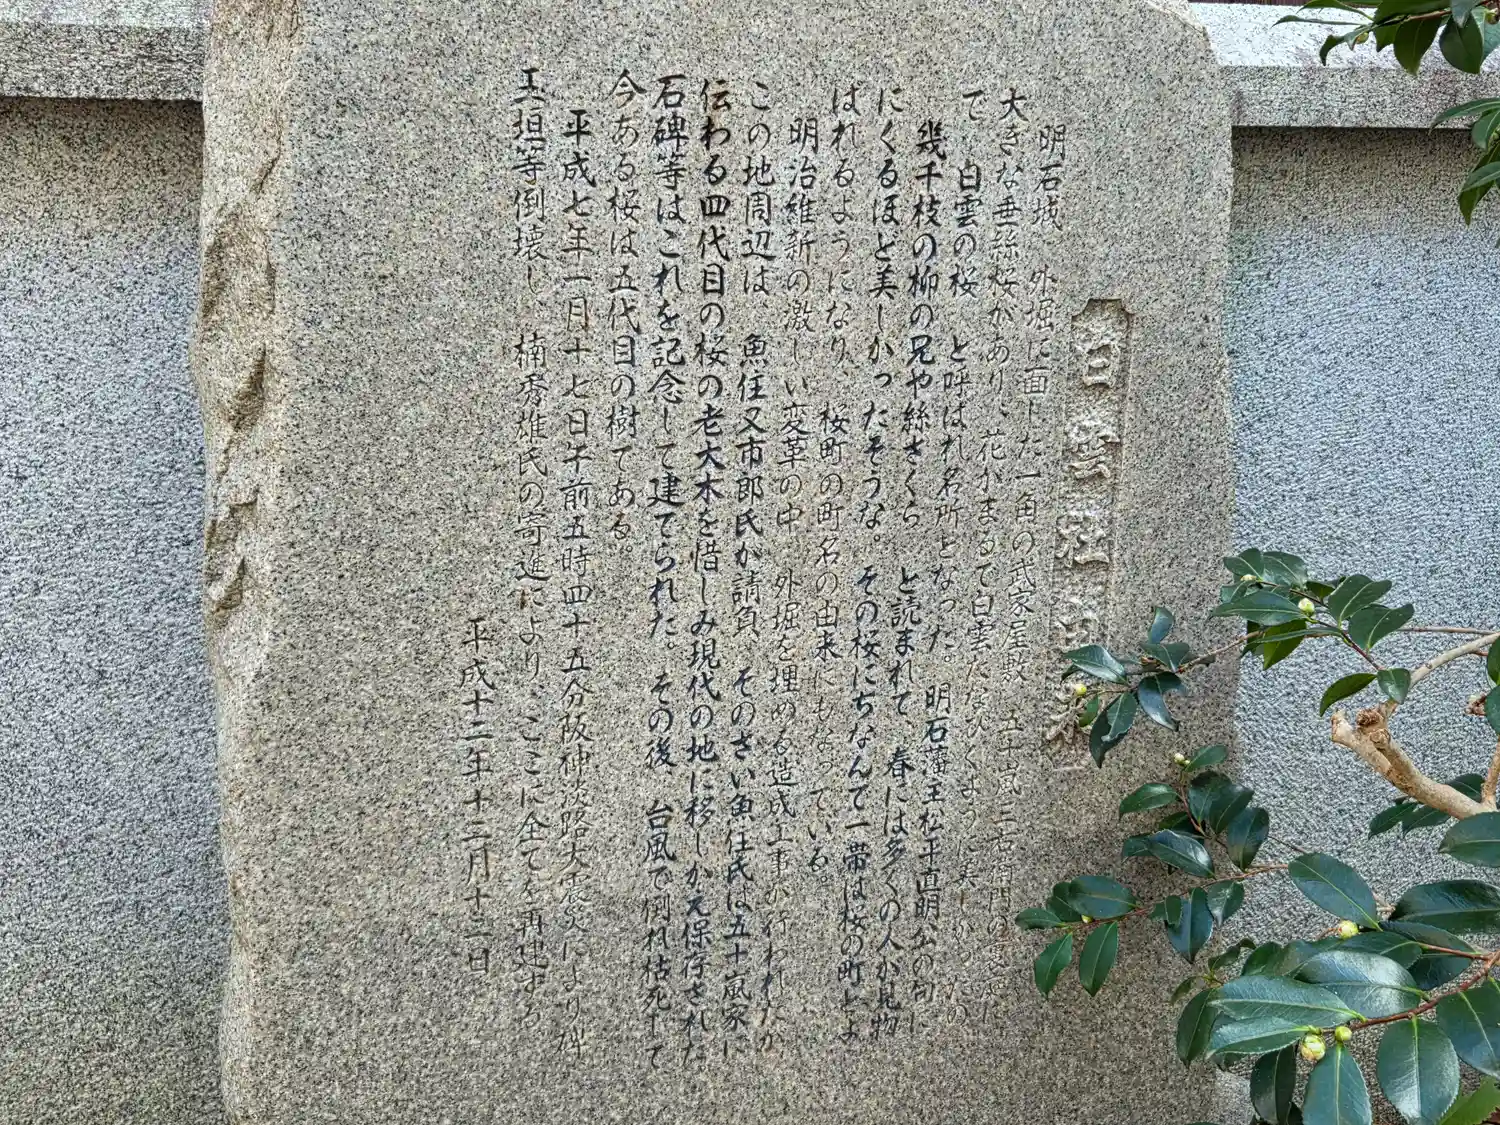 白雲社由来
明石城、外堀に面した一角の武家屋敷、五十嵐三右衛門の
大きな垂絲桜があり、花がまるで白雲たなびくように美しかったの
で、白雲の桜、と呼ばれ名所となった。明石藩主松平直明公の句に
幾千枝の柳の兄や絲さくら、と読まれて、春には多くの人が見物
にくるほど美しかったそうな。その桜にちなんで一帯は桜の町とよ
ばれるようになり、桜町の町名の由来にもなっている。
明治維新の激しい変革の中、外堀を埋める造成工事が行われたが
この地周辺は、魚住又市郎氏が請負、そのさい魚住氏は五十嵐家に
伝わる四代目の桜の老大木を惜しみ現代の地に移しかえ保存された
石碑等はこれを記念して建てられた。その後、台風で倒れ枯死して
今ある桜は五代目の樹である。
平成七年一月十七日午前五時四十五分阪神淡路大震災により碑
玉垣等倒壊し、楠秀雄氏の寄進により、ここに全てを再建する
平成十二年十二月十三日